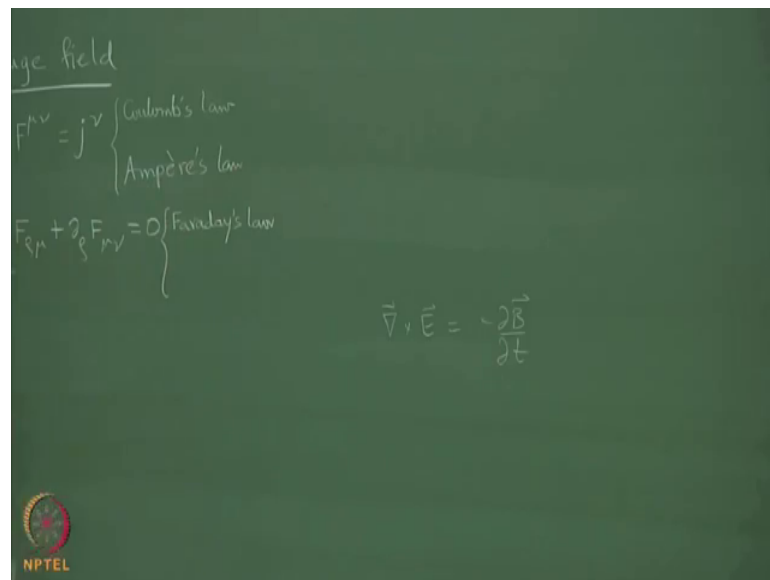 uge field
F^{μν} = j^ν { Coulomb's law
Ampère's law
F_{ρμ} + ∂_ρ F_{μν} = 0 { Faraday's law
∇⃗ × E⃗ = -∂B⃗/∂t
NPTEL